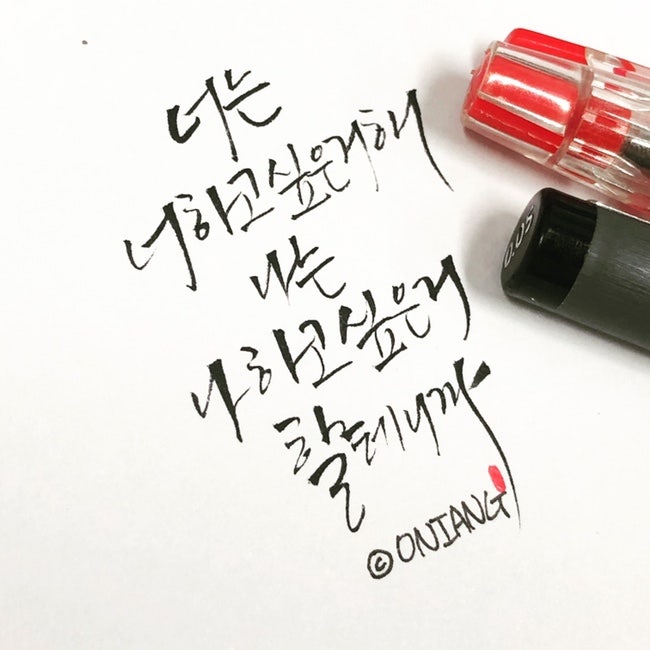 너는
너하고싶은거해
나는
나하고싶은거
할테니까
© ONJANG
0.05